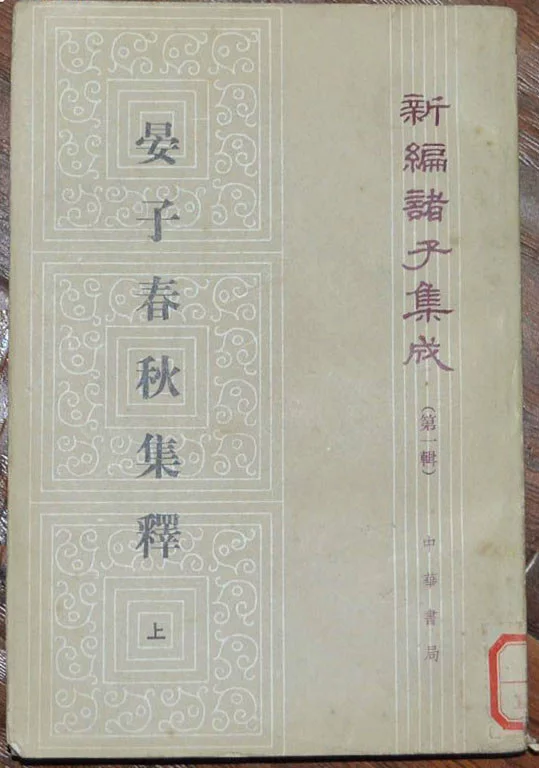 新編諸子集成
（第一輯）
中華書局
晏子春秋集釋
上